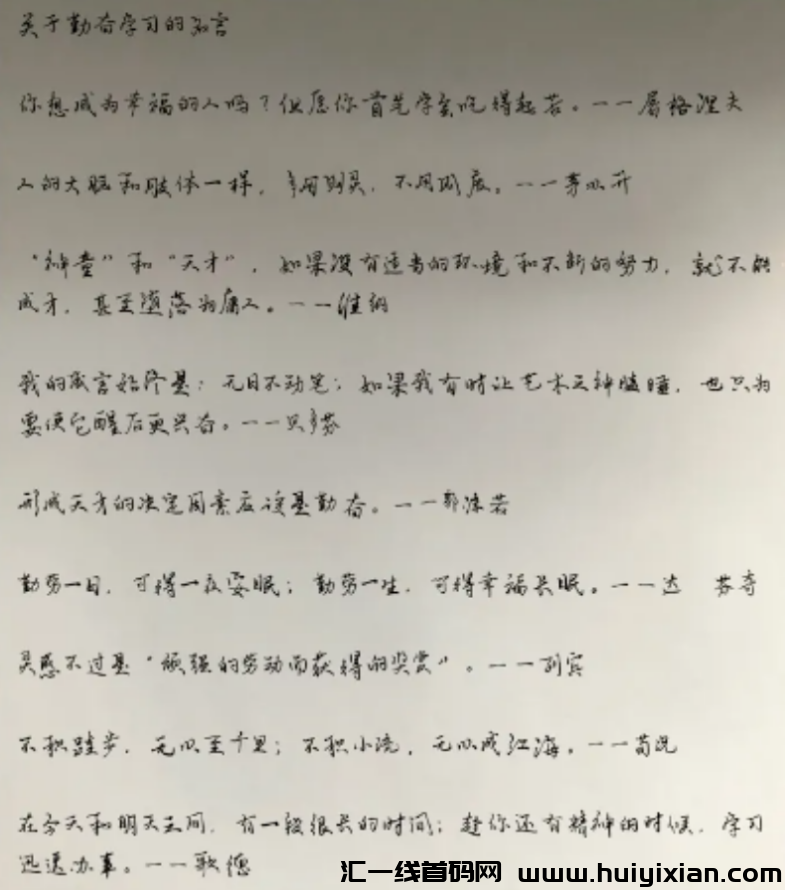 关于勤奋学习的名言
你想成为幸福的人吗？但愿你首先学会吃得起苦。一一屠格涅夫
人的大脑和肢体一样，多用则灵，不用则废。一一茅以升
“神童”和“天才”，如果没有适当的环境和不断的努力，就不能
成才，甚至堕落为庸人。一一维纳
我的箴言始终是：无日不动笔；如果我有时让艺术之神瞌睡，也只为
要使它醒后更兴奋。一一贝多芬
形成天才的决定因素应该是勤奋。一一郭沫若
勤劳一日，可得一夜安眠；勤劳一生，可得幸福长眠。一一达 芬奇
灵感不过是“顽强的劳动而获得的奖赏”。一一列宾
不积跬步，无以至千里；不积小流，无以成江海。一一荀况
在今天和明天之间，有一段很长的时间；趁你还有精神的时候，学习
迅速办事。一一歌德
汇一线首码网 www.huiyixian.com